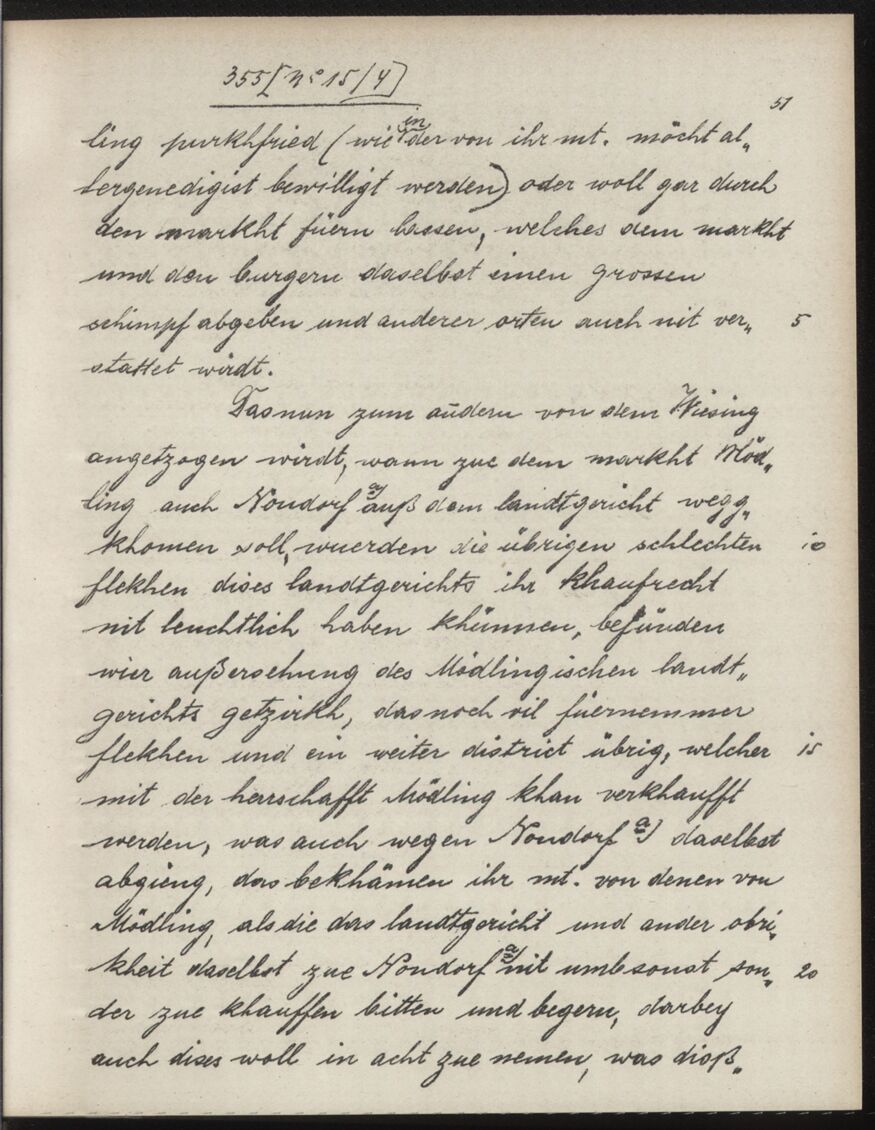 355 [No 15/4]
51
ling purkhfried (wie in der von ihr mt. möcht al„
lergenedigist bewilligt werden) oder woll gar durch
den markht füern lassen, welches dem markht
und den burgern daselbst einen grossen
schimpf abgeben und anderer orten auch nit ver„ 5
stattet wirdt.
Das nun zum andern von dem Wiesing
angetzogen wirdt, wann zue dem markht Möd„
ling auch Nondorf a) auß dem landtgericht wegg„
khomen soll, wuerden die übrigen schlechten 10
flekhen dises landtgerichts ihr khaufrecht
nit leuchtlich haben khünnen, befünden
wier außersehung des Mödlingischen landt„
gerichts getzirkh, das noch vil füernemmer
flekhen und ein weiter district übrig, welcher 15
mit der herrschafft Mödling khan verkhaufft
werden, was auch wegen Nondorf a) daselbst
abgieng, das bekhämen ihr mt. von denen von
Mödling, als die das landtgericht und ander obri„
kheit daselbst zue Nondorf a) nit umbsonst son„ 20
der zue khauffen bitten und begern, darbey
auch dises woll in acht zue nemen, was dioß„